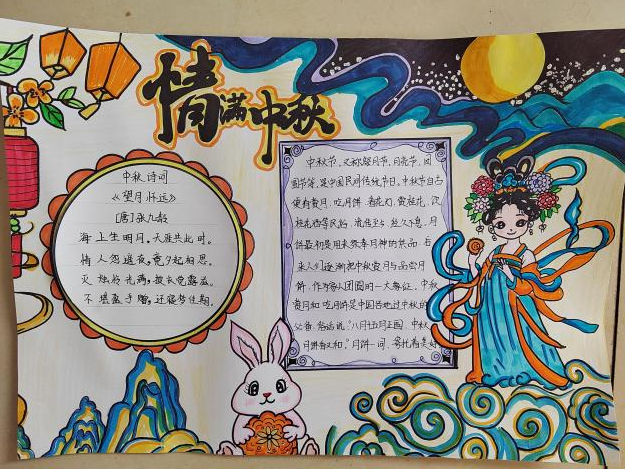 情满中秋
中秋诗词
《望月怀远》
[唐]张九龄
海上生明月,天涯共此时。
情人怨遥夜,竟夕起相思。
灭烛怜光满,披衣觉露滋。
不堪盈手赠,还寝梦佳期。
中秋节,又称祭月节、月亮节、团
圆节等,是中国民间传统节日。中秋节自古
便有赏月、吃月饼、看花灯、赏桂花、饮
桂花酒等民俗,流传至今,经久不息。月
饼最初是用来祭奉月神的祭品,后
来人们逐渐把中秋赏月与品尝月
饼,作为家人团圆的一大象征。中秋
赏月和吃月饼是中国各地过中秋的
必备 俗话说:"八月十五月正圆,中秋
月饼香又和。"月饼一词,